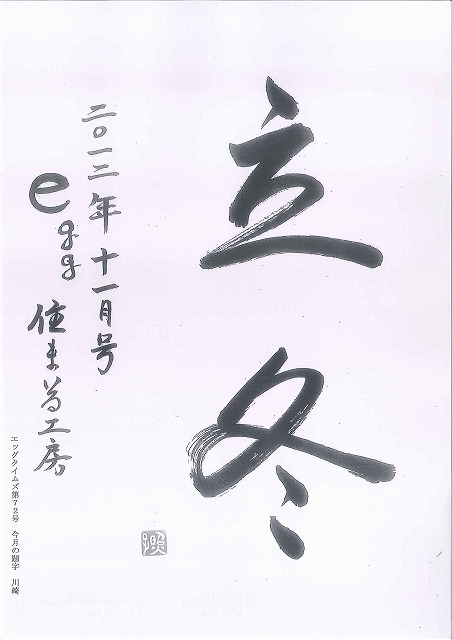 立冬
二〇一二年十一月号
egg 住まいる工房
エッグタイムズ第７２号　今月の題字　川崎